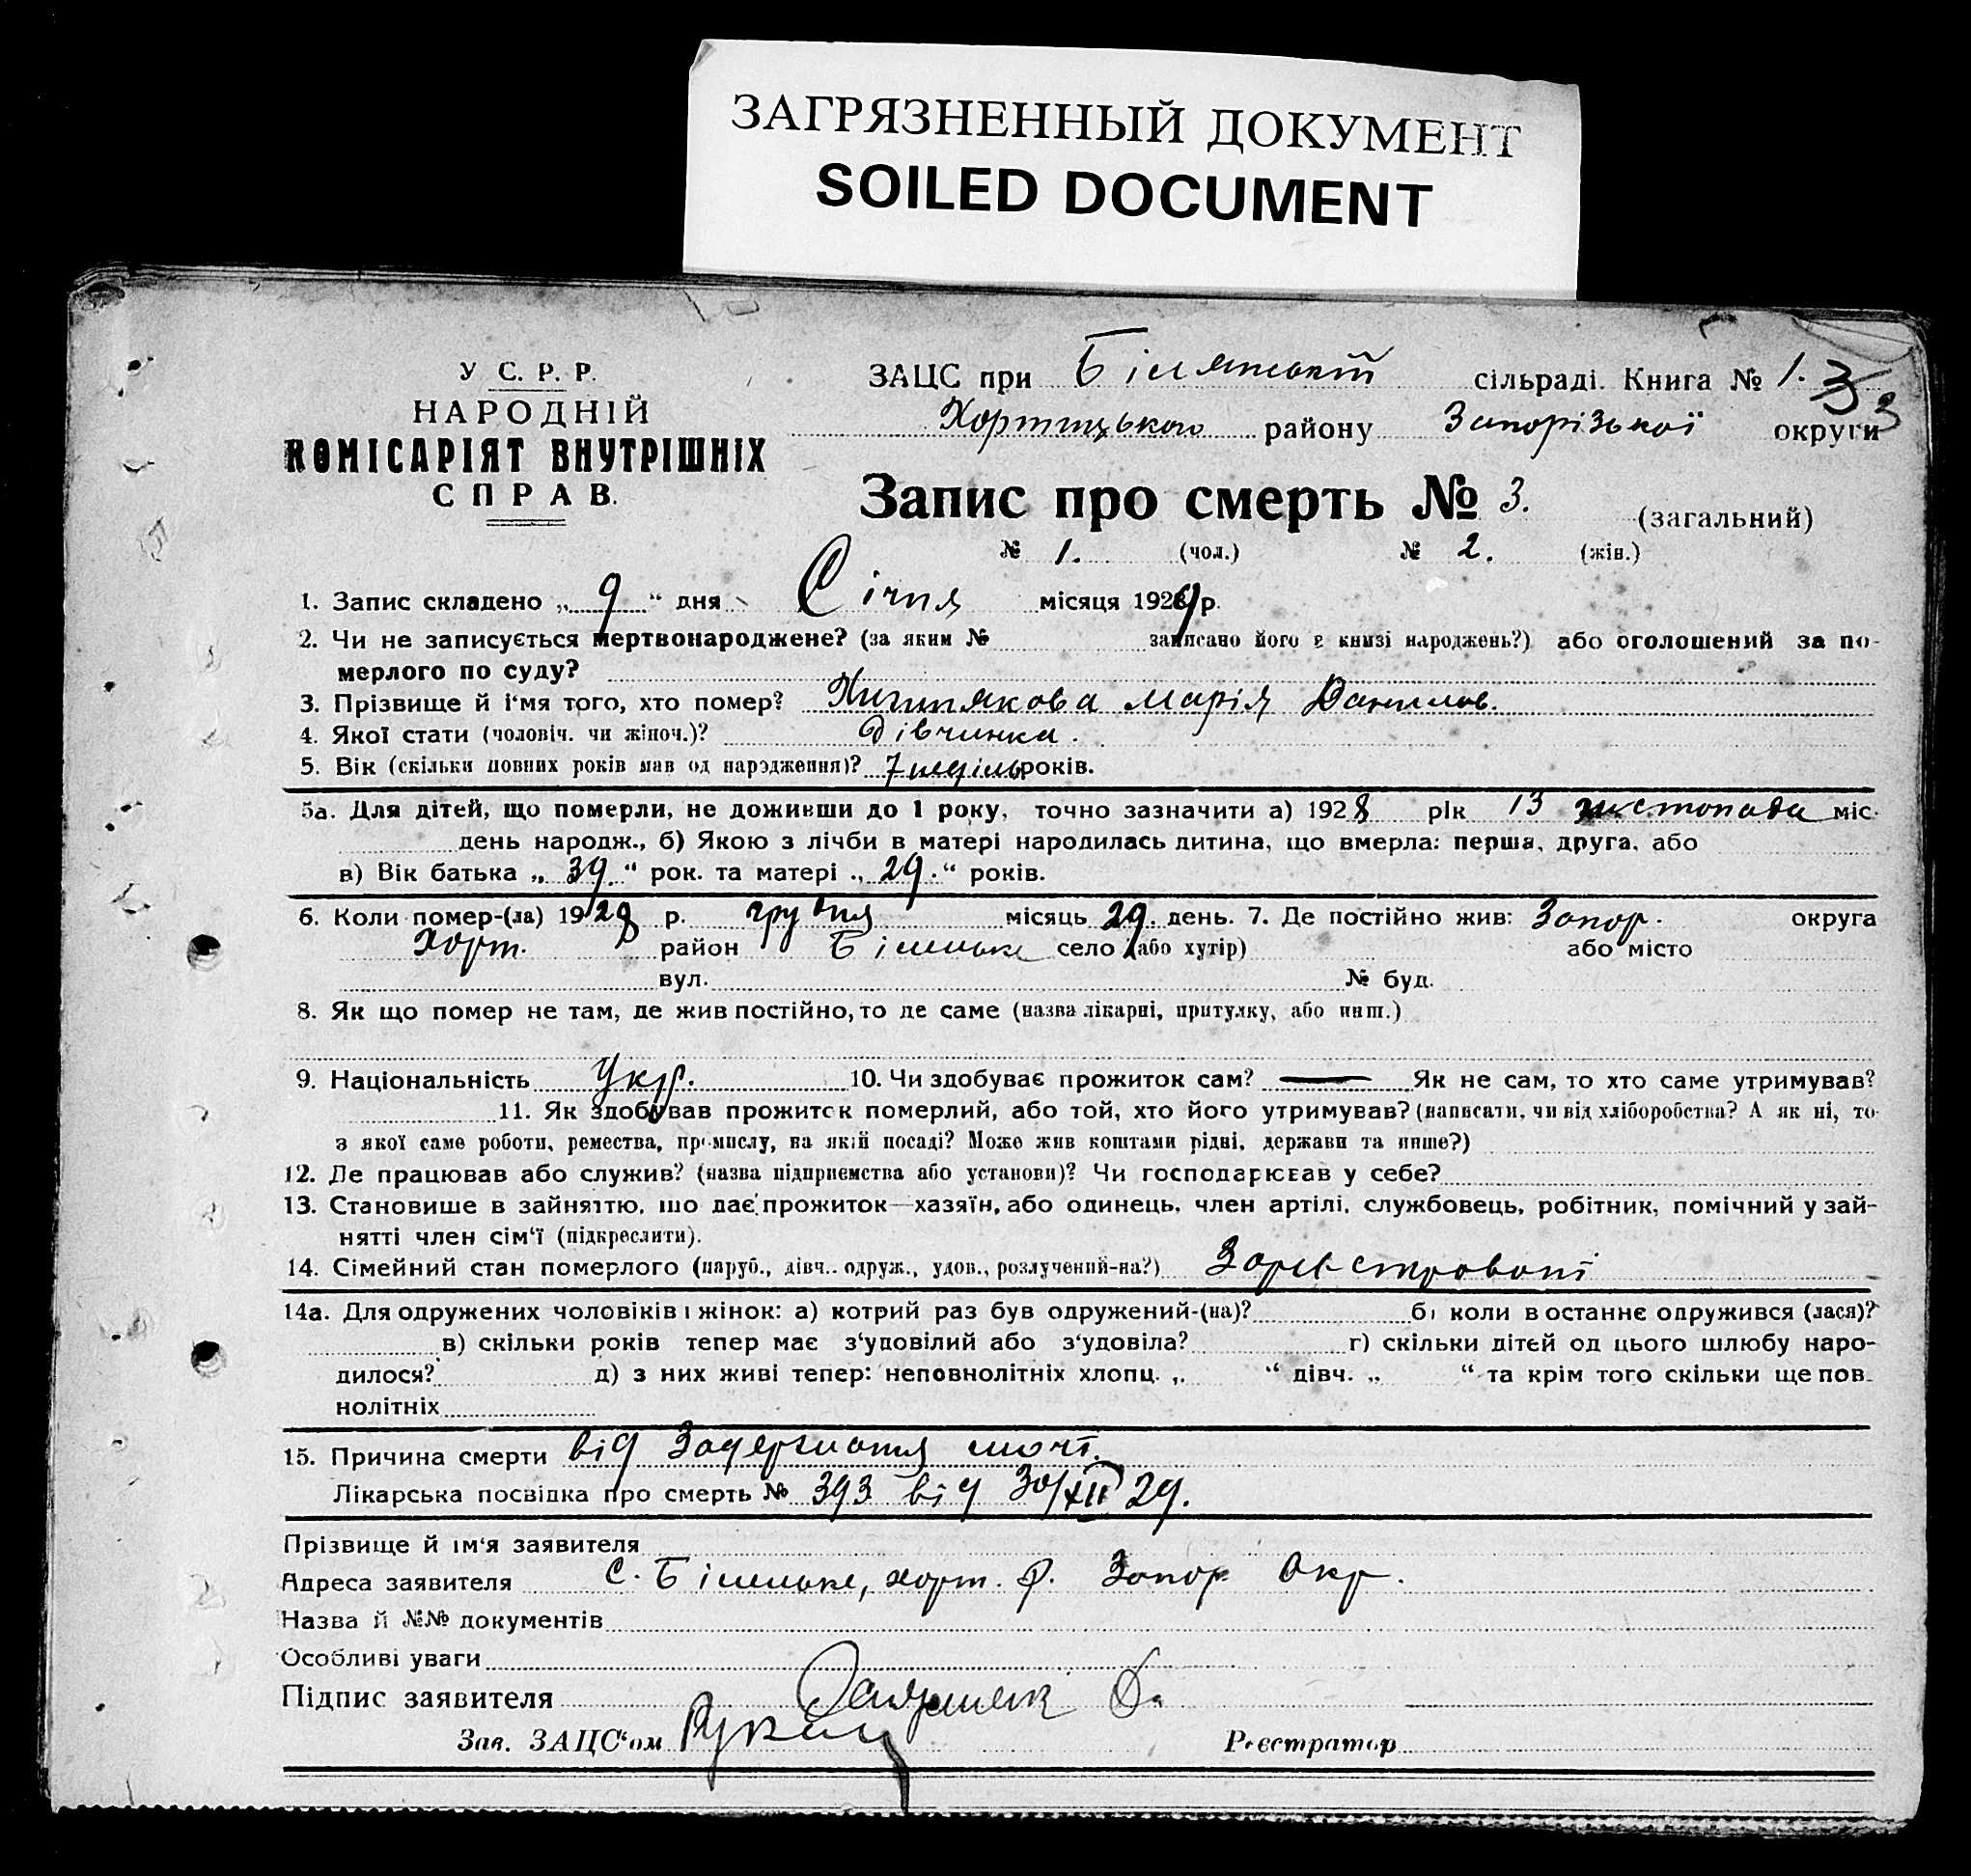 ЗАГРЯЗНЕННЫЙ ДОКУМЕНТ
SOILED DOCUMENT
У С. Р. Р.
НАРОДНІЙ
КОМІСАРІЯТ ВНУТРІШНІХ
СПРАВ.
ЗАЦС при сільраді. Книга № 1. 3
Хортицького району Запорізької округи
Запис про смерть № 3. (загальний)
№ 1. (чол.) № 2. (жін.)
1. Запис складено „ 9 “ дня Січня місяця 1929 р.
2. Чи не записується мертвонароджене? (за яким № записано його в книзі народжень?) або оголошений за по-
мерлого по суду?
3. Прізвище й і‘мя того, хто помер? Марія Данилов.
4. Якої стати (чоловіч. чи жіноч.)? дівчинка.
5. Вік (скільки повних років мав од народження)? 7 неділь років.
5а. Для дітей, що померли, не доживши до 1 року, точно зазначити а) 1928 рік 13 листопада міс.
день народж., б) Якою з лічби в матері народилась дитина, що вмерла: перша, друга, або
в) Вік батька „ 39. “ рок. та матері „ 29. “ років.
6. Коли помер-(ла) 1928 р. грудня місяць 29. день. 7. Де постійно жив: Запор. округа
Хорт. район Біленьке село (або хутір) або місто
вул. № буд.
8. Як що помер не там, де жив постійно, то де саме (назва лікарні, притулку, або инш.)
9. Національність Укр. 10. Чи здобуває прожиток сам? — Як не сам, то хто саме утримував?
11. Як здобував прожиток померлий, або той, хто його утримував? (написати, чи від хліборобства? А як ні, то
з якої саме роботи, ремества, промислу, на якій посаді? Може жив коштами рідні, держави та инше?)
12. Де працював або служив? (назва підприємства або установи)? Чи господарював у себе?
13. Становище в зайняттю, що дає прожиток—хазяїн, або одинець, член артілі, службовець, робітник, помічний у зай-
нятті член сім‘ї (підкреслити).
14. Сімейний стан померлого (паруб., дівч., одруж., удов., розлучений-на?)
14а. Для одружених чоловіків і жінок: а) котрий раз був одружений-(на)? б) коли в останнє одружився (лася)?
в) скільки років тепер має з‘удовілий або з‘удовіла? г) скільки дітей од цього шлюбу наро-
дилося? д) з них живі тепер: неповнолітніх хлопц. „ “ дівч. „ “ та крім того скільки ще пов-
нолітніх
15. Причина смерти від Задержання мочі.
Лікарська посвідка про смерть № 393 від 30/XII 29.
Прізвище й ім‘я заявителя
Адреса заявителя с. Біленьке, хорт. р. Запор Окр.
Назва й №№ документів
Особливі уваги
Підпис заявителя
Зав. ЗАЦС‘ом
Реєстратор